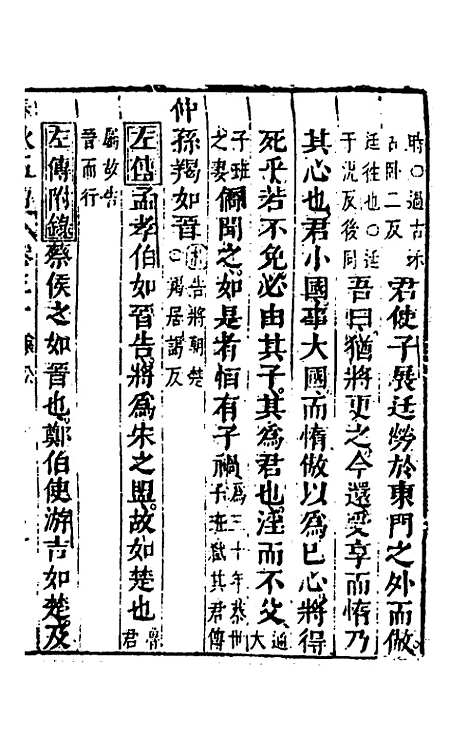 時○過古禾古臥二反 君使子展迋勞於東門之外而傲
迋往也○迋于況反後同 吾曰猶將更之今還受享而惰乃
其心也君小國事大國而惰傲以爲已心將得
死乎若不免必由其子其爲君也淫而不父通大
子班之妻 僑聞之如是者恒有子禍爲三十年蔡世子班弑其君傳
仲孫羯如晉告將朝楚○羯居謁反
左傳孟孝伯如晉告將爲宋之盟故如楚也魯君
屬故告晉而行
左傳附錄蔡侯之如晉也鄭伯使游吉如楚及